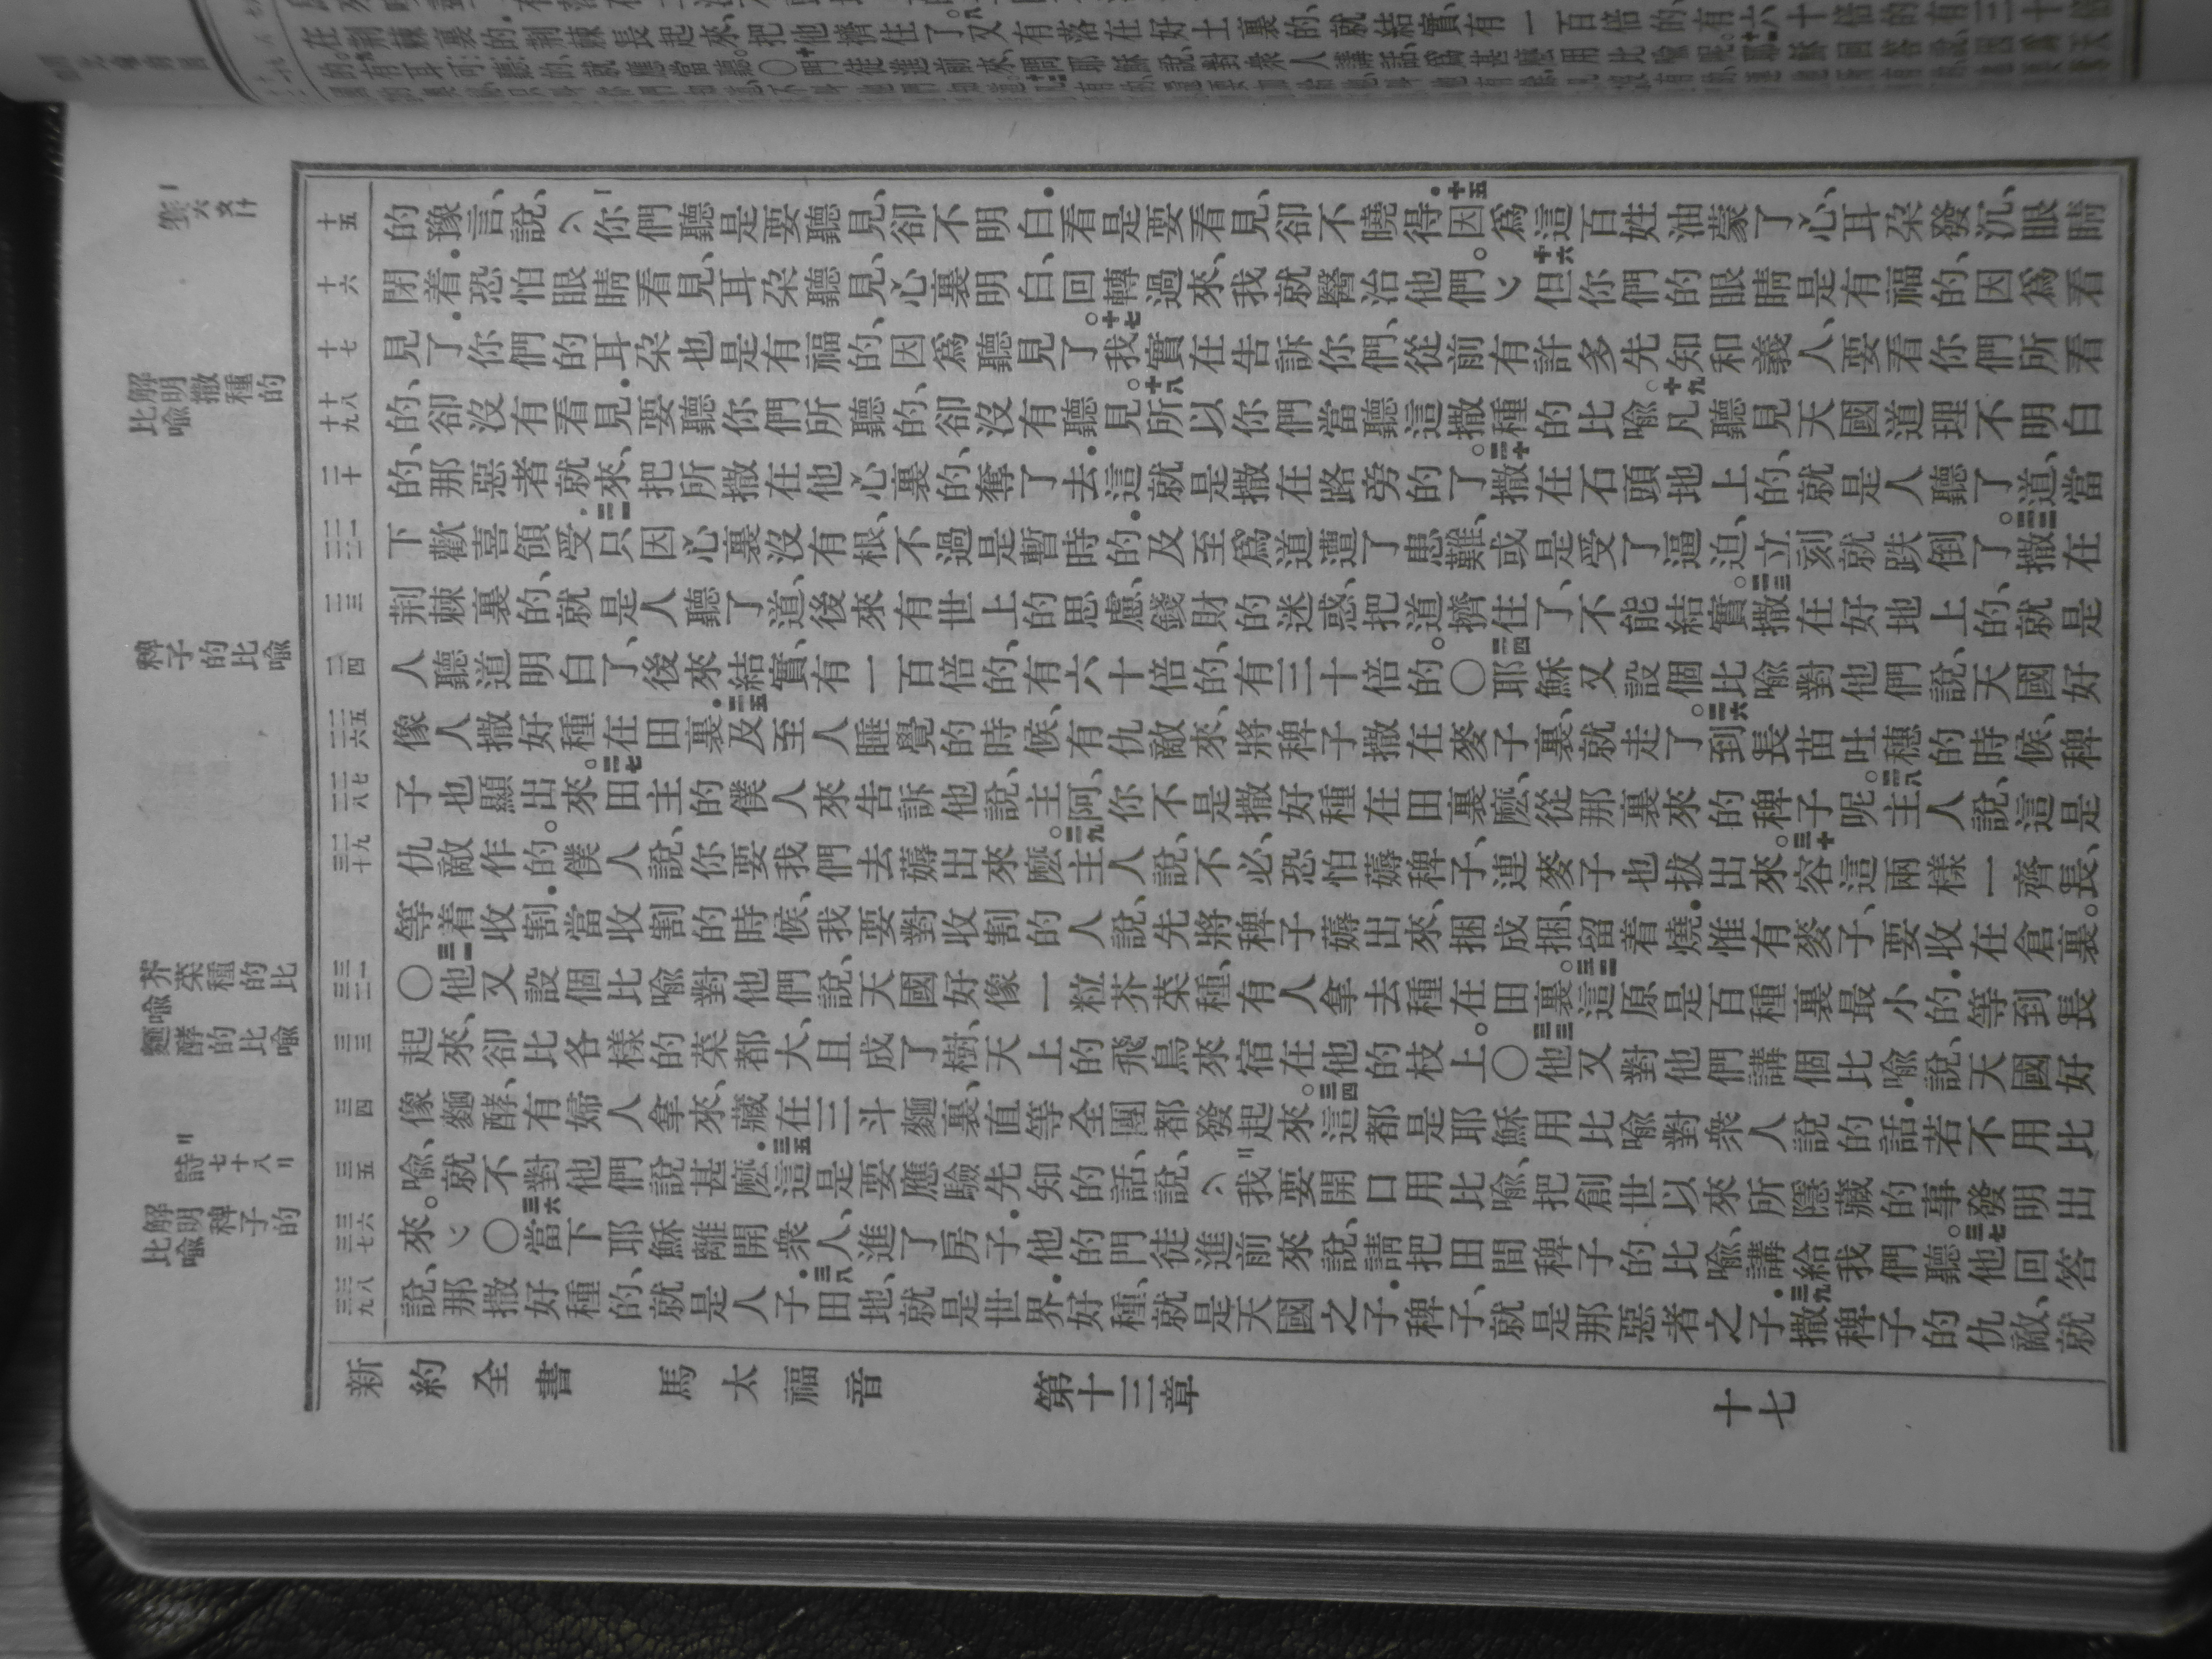 的豫言、說、〈一你們聽是要聽見、卻不明白.看是要看見、卻不曉得.十五因爲這百姓油蒙了心、耳朵發沉、眼睛
閉着.恐怕眼睛看見、耳朵聽見、心裏明白、回轉過來、我就醫治他們。〉十六但你們的眼睛是有福的、因爲看
見了.你們的耳朵也是有福的、因爲聽見了。十七我實在告訴你們、從前有許多先知和義人、要看你們所看
的、卻沒有看見.要聽你們所聽的、卻沒有聽見。十八所以你們當聽這撒種的比喻。十九凡聽見天國道理不明白
的、那惡者就來、把所撒在他心裏的奪了去.這就是撒在路旁的了。二十撒在石頭地上的、就是人聽了道、當
下歡喜領受.二一只因心裏沒有根、不過是暫時的.及至爲道遭了患難、或是受了逼迫、立刻就跌倒了。二二撒在
荆棘裏的、就是人聽了道、後來有世上的思慮、錢財的迷惑、把道擠住了、不能結實。二三撒在好地上的、就是
人聽道明白了、後來結實、有一百倍的、有六十倍的、有三十倍的。〇二四耶穌又設個比喻對他們說、天國好
像人撒好種在田裏.二五及至人睡覺的時候、有仇敵來、將稗子撒在麥子裏、就走了。二六到長苗吐穗的時候、稗
子也顯出來。二七田主的僕人來告訴他說、主阿、你不是撒好種在田裏麽、從那裏來的稗子呢。二八主人說、這是
仇敵作的。僕人說、你要我們去薅出來麽。二九主人說、不必、恐怕薅稗子、連麥子也拔出來。三十容這兩樣一齊長、
等着收割.當收割的時候、我要對收割的人說、先將稗子薅出來、捆成捆、留着燒.惟有麥子、要收在倉裏。
〇三一他又設個比喻對他們說、天國好像一粒芥菜種、有人拿去種在田裏。三二這原是百種裏最小的.等到長
起來、卻比各樣的菜都大、且成了樹、天上的飛鳥來宿在他的枝上。〇三三他又對他們講個比喻說、天國好
像麵酵、有婦人拿來、藏在三斗麵裏、直等全團都發起來。三四這都是耶穌用比喻對衆人說的話.若不用比
喻、就不對他們說甚麽.三五這是要應驗先知的話、說、〈二我要開口用比喻、把創世以來所隱藏的事發明出
來。〉〇三六當下耶穌離開衆人、進了房子.他的門徒進前來說、請把田間稗子的比喻、講給我們聽。三七他回答
說、那撒好種的、就是人子.三八田地、就是世界.好種、就是天國之子.稗子、就是那惡者之子.三九撒稗子的仇敵、就
新約全書 馬太福音 第十三章 十七
解明撒種的比喻
稗子的比喻
芥菜種的比喻
麵酵的比喻
二詩七十八 二
解明稗子的比喻
十五
十六
十七
十八
十九
二十
二一
二二
二三
二四
二五
二六
二七
二八
二九
三十
三一
三二
三三
三四
三五
三六
三七
三八
三九